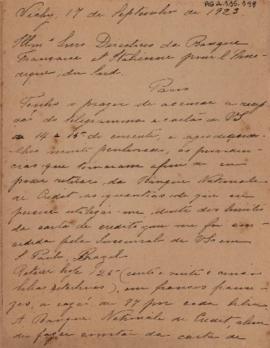 Vichy, 17 de Septembro de 1923
Illmos Snres Directores da Banque
Française et Italienne pour l'Amé-
rique du Sud.
Paris
Tenho o prazer de accusar a recep-
ção do telegramma e carta de VS
de 14 e 15 do corrente, e agradeço-
lhes muito penhorado, as providen-
cias que tomaram afim de eu
poder retirar da Banque Nationale
de Credit as quantias de que eu
precise dentro dos limites
da carta de credito que me foi con-
cedida pela Succursale de
S. Paulo, Brazil.
Retirei hoje £ 125 (cento e vinte e cinco
libras esterlinas), em francos france-
zes, a razão de 77 por cada libra
A Banque Nationale de Credit, alem
de fazer da carta de